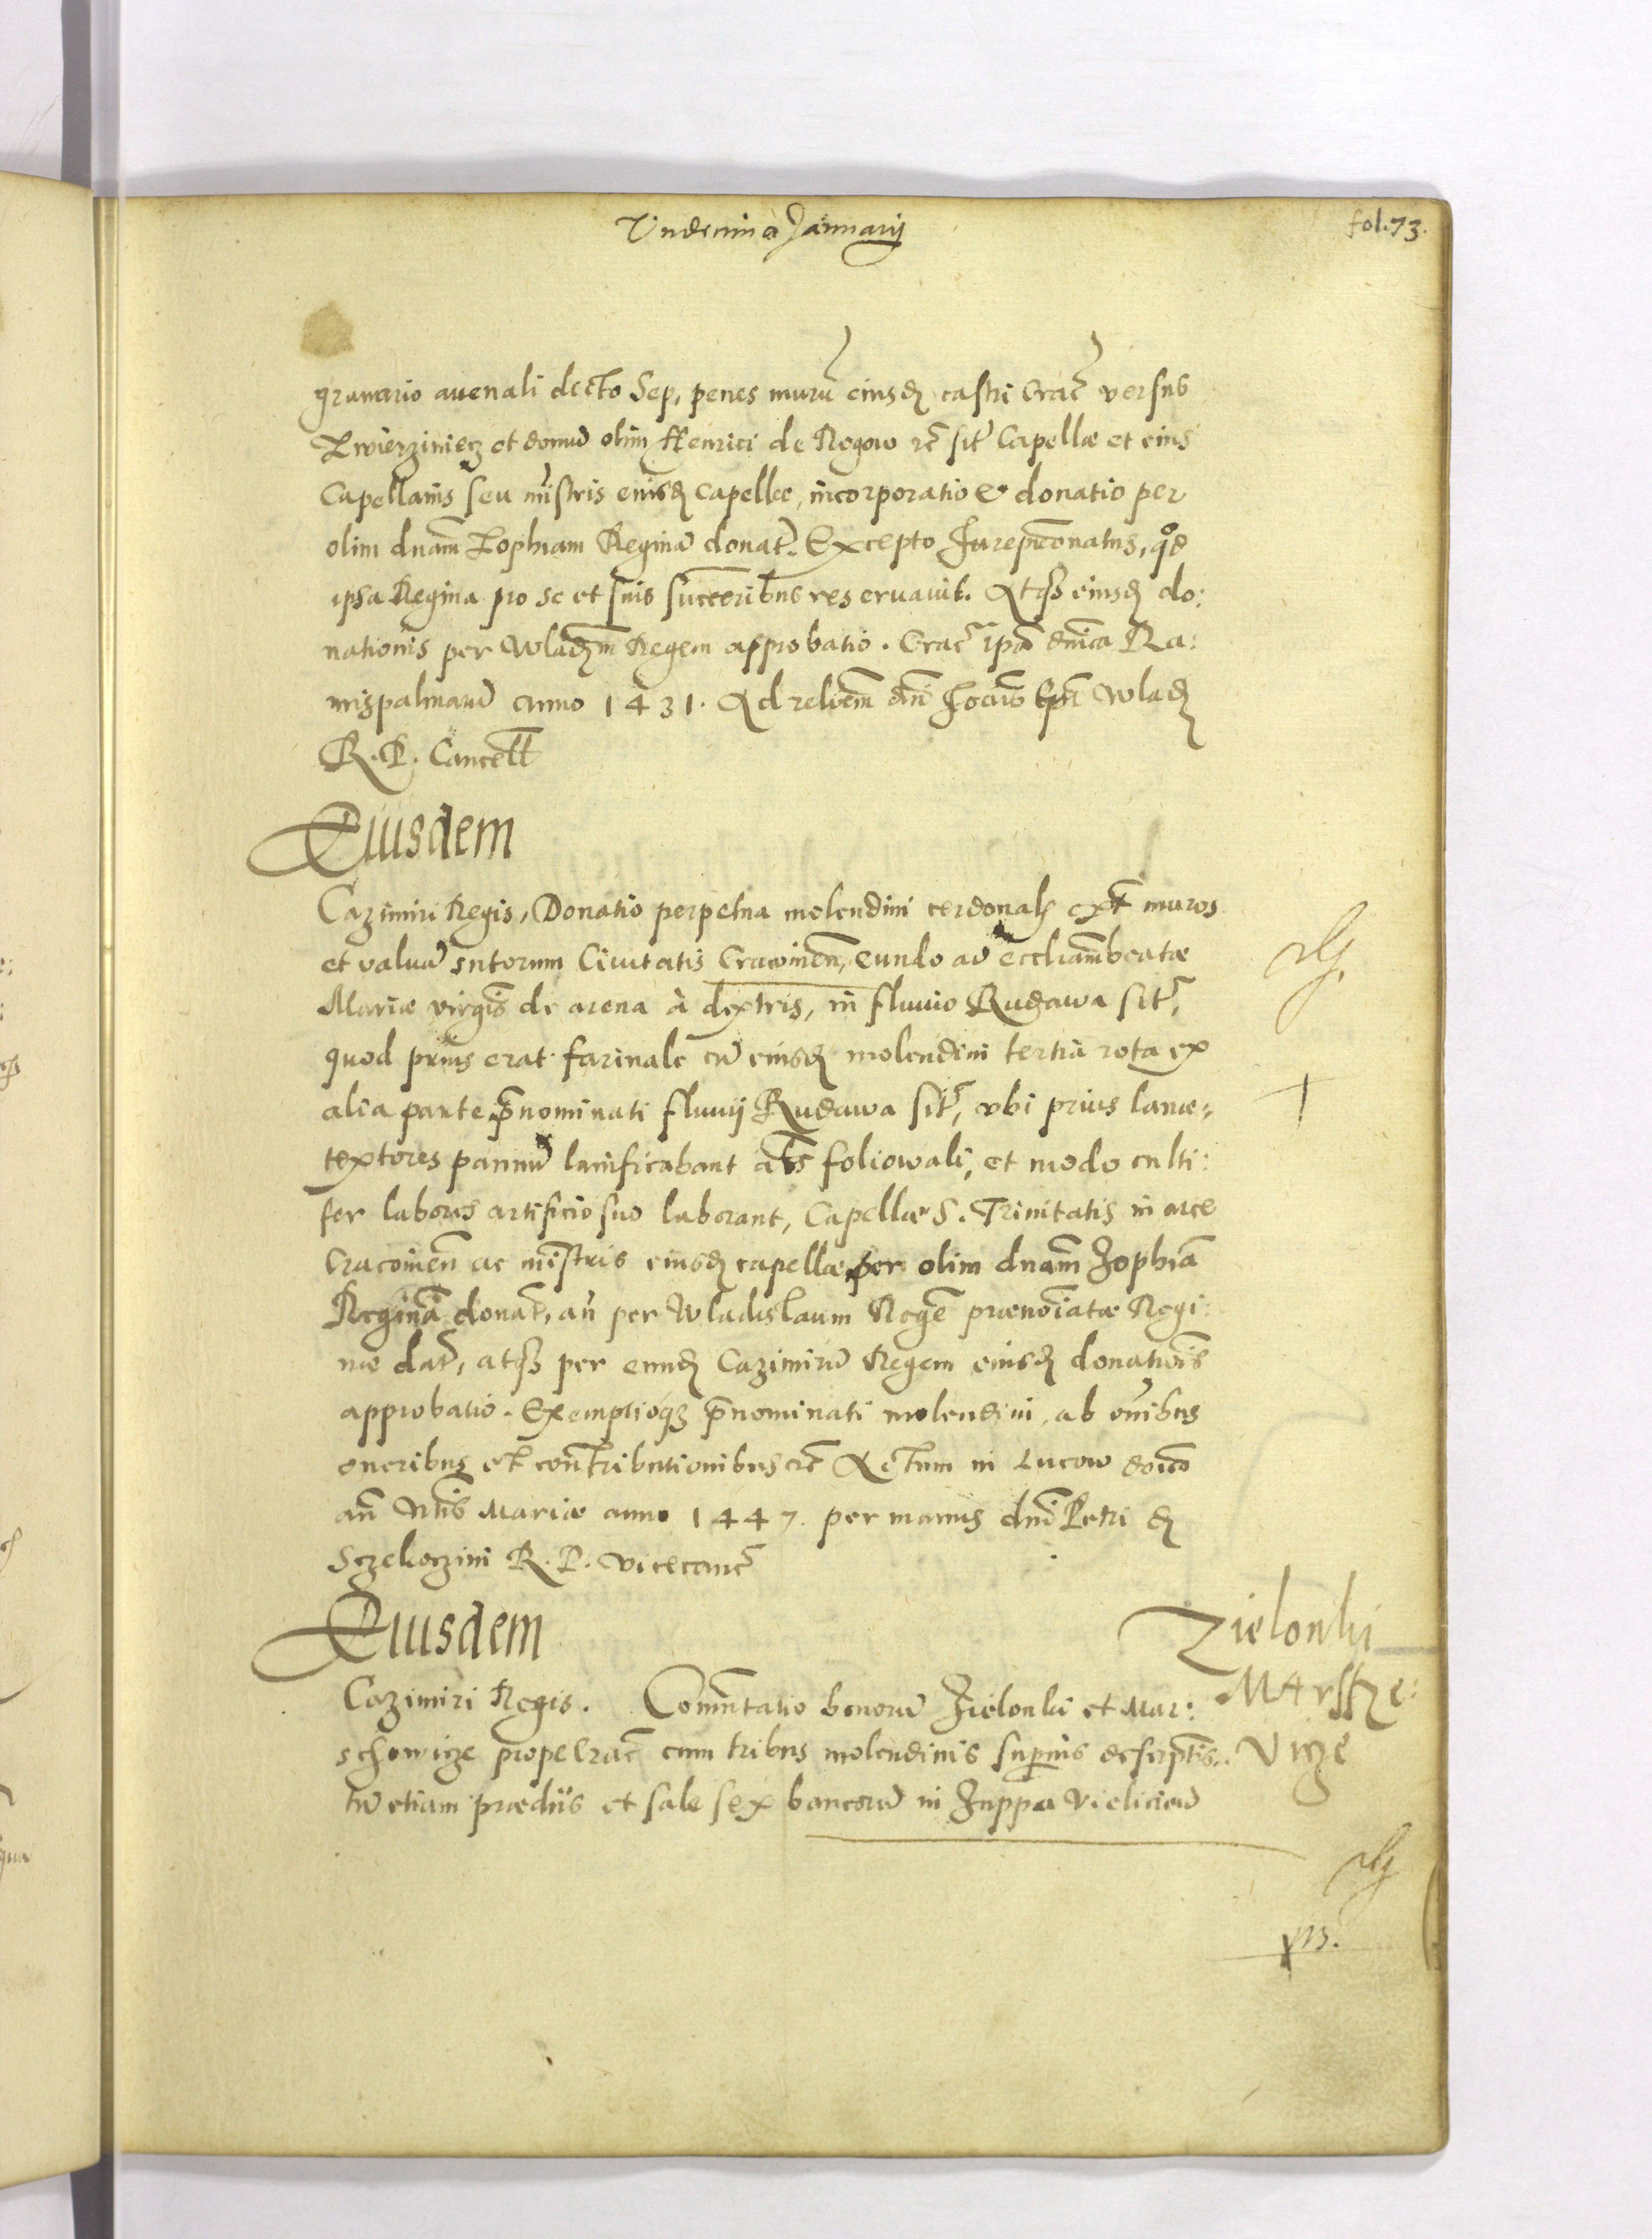 Undecima Januarij
fol. 73.
granario auenali dicto Sep, penes murũ eiusdꝫ castri Crac̃ versus
Zwierziniecz et domũ olim Henrici de Rogow ꝛc̃ sit̃ Capellæ et eius
Capellanis seu mĩstris eiusdꝫ capellæ, incorporatio & donatio per
olim dnãm Zophiam Reginã donat̃. Excepto Jurepñonatus, qd
ipsa Regina pro se et suis succ̃oribus reseruauit. Atqꝫ eiusdꝫ do:
nationis per Wladm̃ Regem approbatio. Crac̃ ipã dñica Ra:
mispalmarũ anno 1431. Ad relõem dñi Joãis Epĩ Wladꝫ
R. P. Cancell̃
Eiusdem
Cazimiri Regis, Donatio perpetua molendini cerdonalꝫ ext̃ muros
et valuã sutorum Ciuitatis Cracouieñ, eundo ad eccliam̃ beatæ
Mariæ virgĩs de arena à dextris, in fluuio Rudawa sit̃,
quod prius erat farinale cũ eiusdꝫ molendini tertia rota ex
alia parte p̃nominati fluuij Rudawa sit̃, vbi prius lanæ=
textores pannũ lanificabant al̃s foliowali, et modo culti:
fer labores artificio suo laborant, Capellæ S. Trinitatis in arce
Cracouieñ ac mĩstris eiusdꝫ capellæ per olim dnãm Zophiã
Reginã donat̃, añ per Wladislaum Regẽ prænoĩatæ Regi:
næ dat̃, atqꝫ per eundꝫ Cazimirũ Regem eiusdꝫ donatiõis
approbatio. Exemptioqꝫ p̃nominati molendini, ab oĩbus
oneribus et con̄tributionibus ꝛc̃ Actum in Lucow doĩco
añ Ntĩs Mariæ anno 1447. per manus dñi Petri dꝫ
Sczekoczini R. P. vicecanc̃
Eiusdem
Cazimiri Regis. Com̃utatio bonorũ Zielonki et Mar:
schowicze prope Crac̃ cum tribus molendinis sup̃ius descriptis.
tũ etiam prædiis et sale sex bancorũ in Zuppa Vielicieñ
Zielonki
MArssze:
Vicze